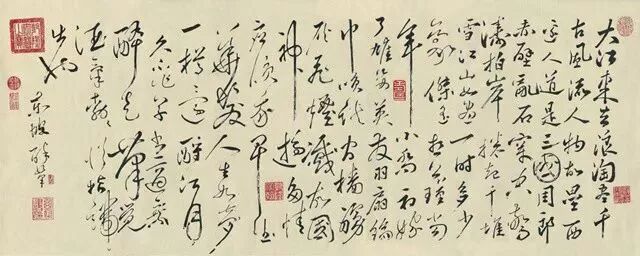 大江東去浪淘盡千
古風流人物故壘西
邊人道是三國周郎
赤壁亂石穿空驚
濤拍岸捲起千堆
雪江山如畫一時多少
豪傑遙想公瑾當
年小喬初嫁
了雄姿英發羽扇綸
巾談笑間檣艣
灰飛煙滅故國
神遊多情
應笑我早生
華髮人生如夢
一樽還酹江月
久不作草書適乘
醉走筆覺
酒氣勃勃從指端
出也
東坡醉筆